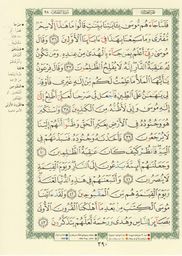 فَلَمَّا جَاءَهُم مُّوسَىٰ بِآيَاتِنَا بَيِّنَاتٍ قَالُوا مَا هَٰذَا إِلَّا سِحْرٌ
مُّفْتَرًى وَمَا سَمِعْنَا بِهَٰذَا فِي آبَائِنَا الْأَوَّلِينَ ٣٦ وَقَالَ
مُوسَىٰ رَبِّي أَعْلَمُ بِمَن جَاءَ بِالْهُدَىٰ مِنْ عِندِهِ وَمَن تَكُونُ
لَهُ عَاقِبَةُ الدَّارِ إِنَّهُ لَا يُفْلِحُ الظَّالِمُونَ ٣٧ وَقَالَ فِرْعَوْنُ
يَا أَيُّهَا الْمَلَأُ مَا عَلِمْتُ لَكُم مِّنْ إِلَٰهٍ غَيْرِي فَأَوْقِدْ لِي
يَا هَامَانُ عَلَى الطِّينِ فَاجْعَل لِّي صَرْحًا لَّعَلِّي أَطَّلِعُ إِلَىٰ إِلَٰهِ
مُوسَىٰ وَإِنِّي لَأَظُنُّهُ مِنَ الْكَاذِبِينَ ٣٨ وَاسْتَكْبَرَ هُوَ
وَجُنُودُهُ فِي الْأَرْضِ بِغَيْرِ الْحَقِّ وَظَنُّوا أَنَّهُمْ إِلَيْنَا
لَا يُرْجَعُونَ ٣٩ فَأَخَذْنَاهُ وَجُنُودَهُ فَنَبَذْنَاهُمْ فِي
الْيَمِّ فَانظُرْ كَيْفَ كَانَ عَاقِبَةُ الظَّالِمِينَ ٤٠
وَجَعَلْنَاهُمْ أَئِمَّةً يَدْعُونَ إِلَى النَّارِ وَيَوْمَ الْقِيَامَةِ
لَا يُنصَرُونَ ٤١ وَأَتْبَعْنَاهُمْ فِي هَٰذِهِ الدُّنْيَا لَعْنَةً
وَيَوْمَ الْقِيَامَةِ هُم مِّنَ الْمَقْبُوحِينَ ٤٢ وَلَقَدْ آتَيْنَا
مُوسَى الْكِتَابَ مِن بَعْدِ مَا أَهْلَكْنَا الْقُرُونَ الْأُولَىٰ
بَصَائِرَ لِلنَّاسِ وَهُدًى وَرَحْمَةً لَّعَلَّهُمْ يَتَذَكَّرُونَ ٤٣
٣٩٠